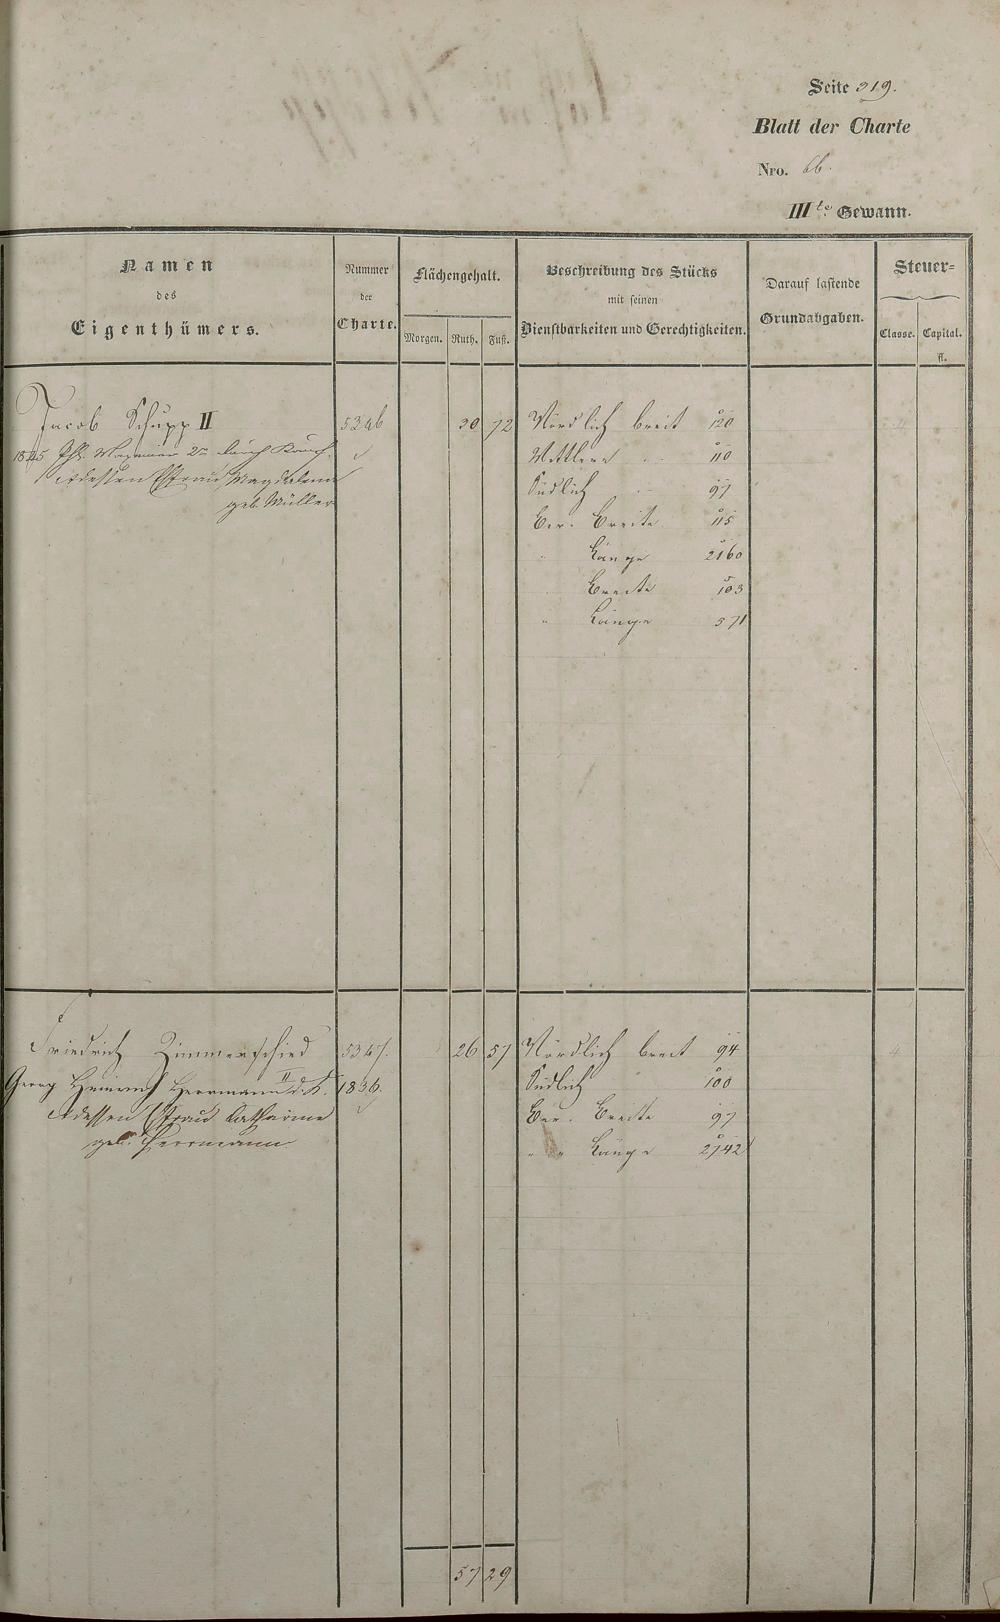 Seite 319.
Blatt der Charte
Nro. 6b.
IIIte Gewann.
Namen des Eigenthümers.
Nummer der Charte.
Flächengehalt.
Morgen. Ruth. Fuß.
Beschreibung des Stücks mit seinen Dienstbarkeiten und Gerechtigkeiten.
Darauf lastende Grundabgaben.
Steuer-
Classe. Capital.
fl.
Jacob Schupp II 5346 30 72 Nördlich breit 120
1845 2r durch Kauf. Mittlere 110
dessen Efrau Magdalena Südlich 97
geb. Müller
Breite 115
" Länge 2160
Breite 103
" Länge 571
Friedrich Zimmerschied 5347. 26 57 Nördlich breit 94
Georg Heinrich Herrmann II 1836. Südlich 100
dessen Efrau Catharine Breite 97
geb. Herrmann " " Länge 2742
57 29